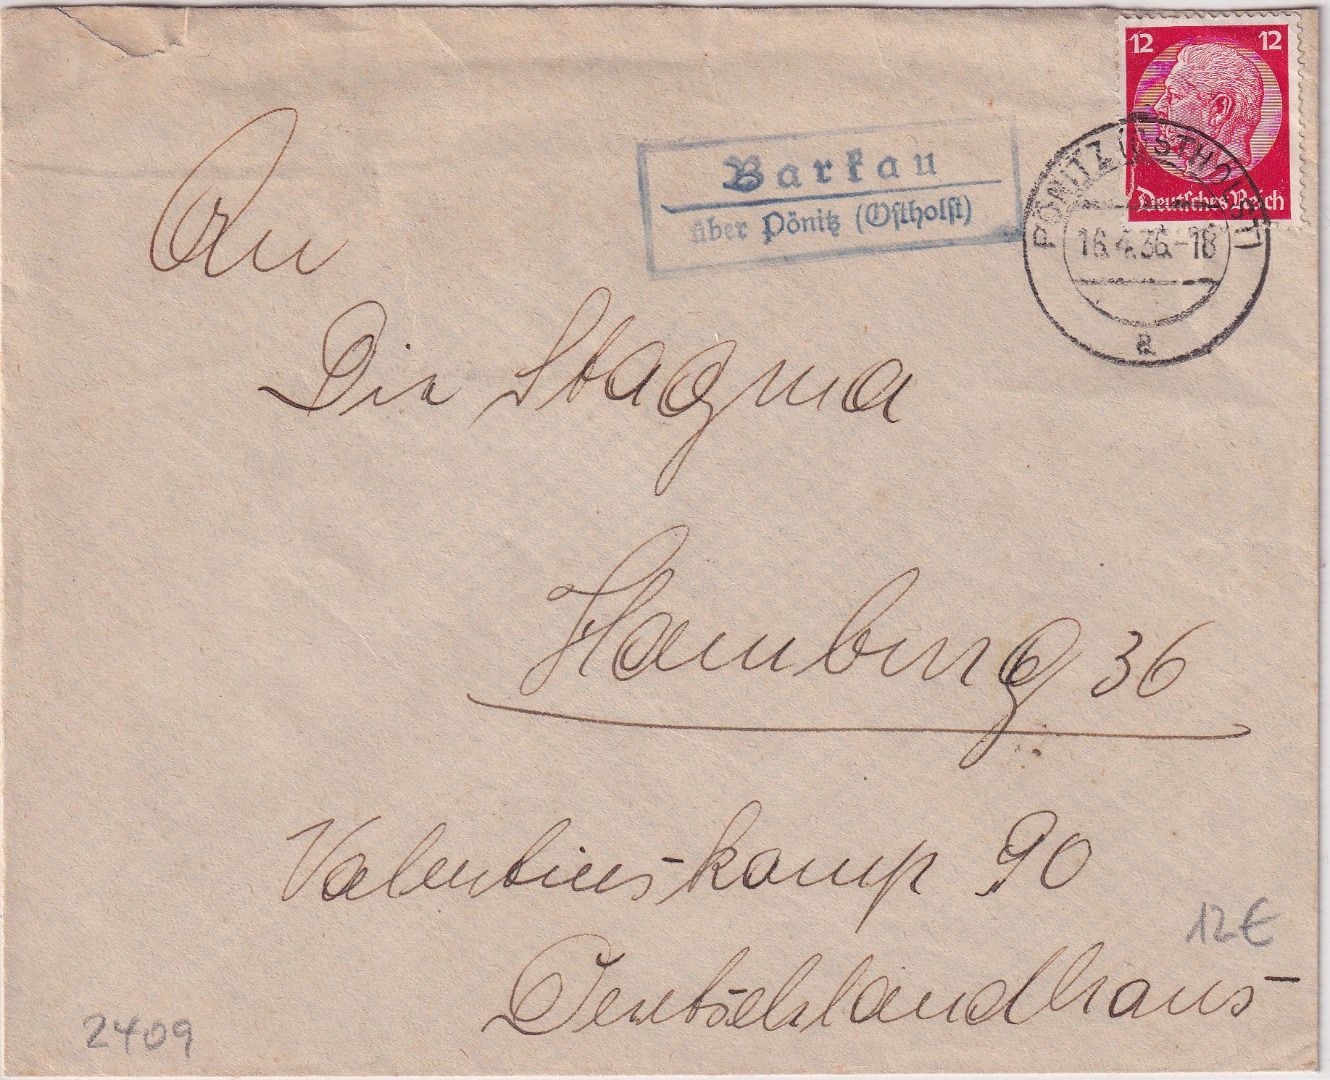 12 12
Deutsches Reich
Barkau
über Pönitz (Ostholst)
PÖNITZ (OSTHOLST)
16.4.36.-18
a
An
Die Stagma
Hamburg 36
Valentins-kamp 90
Deutschlandhaus
12€
2409